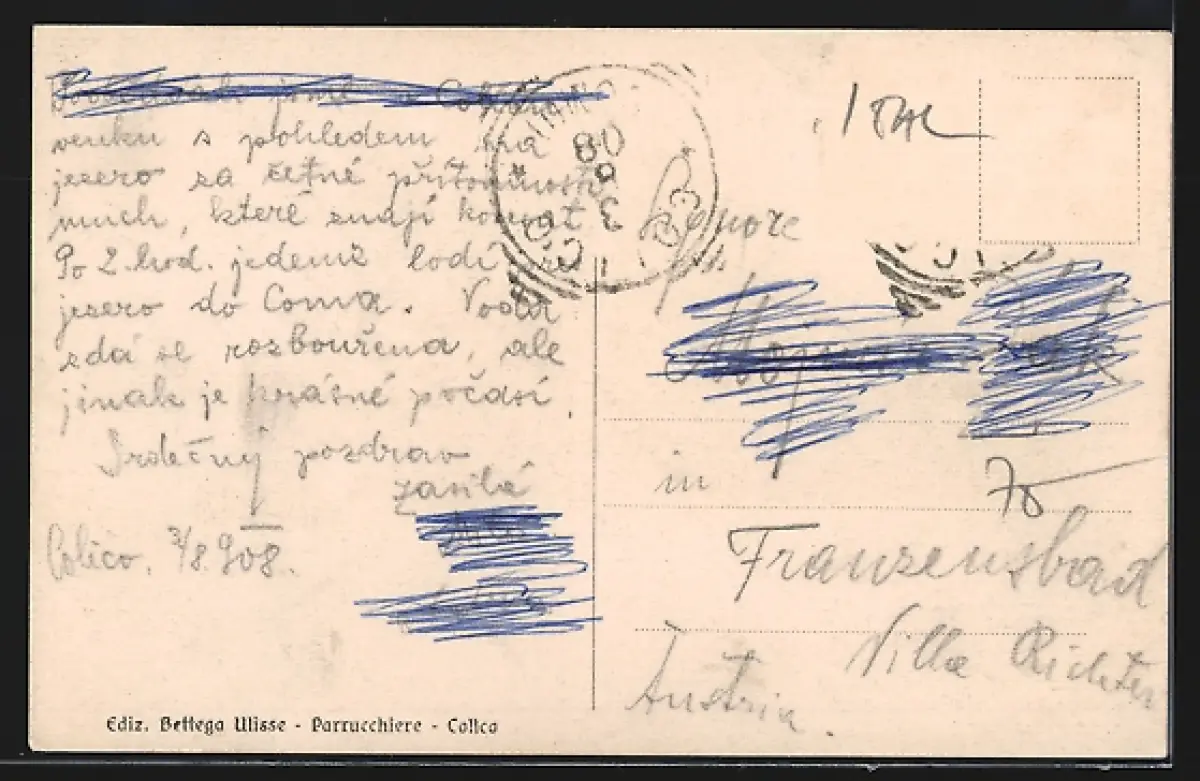 jsme v
venku s pohledem na
jezero za četné přítomnosti
much, které znají kousat
Po 2. hod. jedeme lodí
jezero do Coma. Voda
zdá se rozbouřena, ale
jinak je krásné počasí.
Srdečný pozdrav
zasílá
Colico, 3/8.908.
Ediz. Bettega Ulisse - Parrucchiere - Colico
in
70
Franzensbad
Villa Richter
Austria.